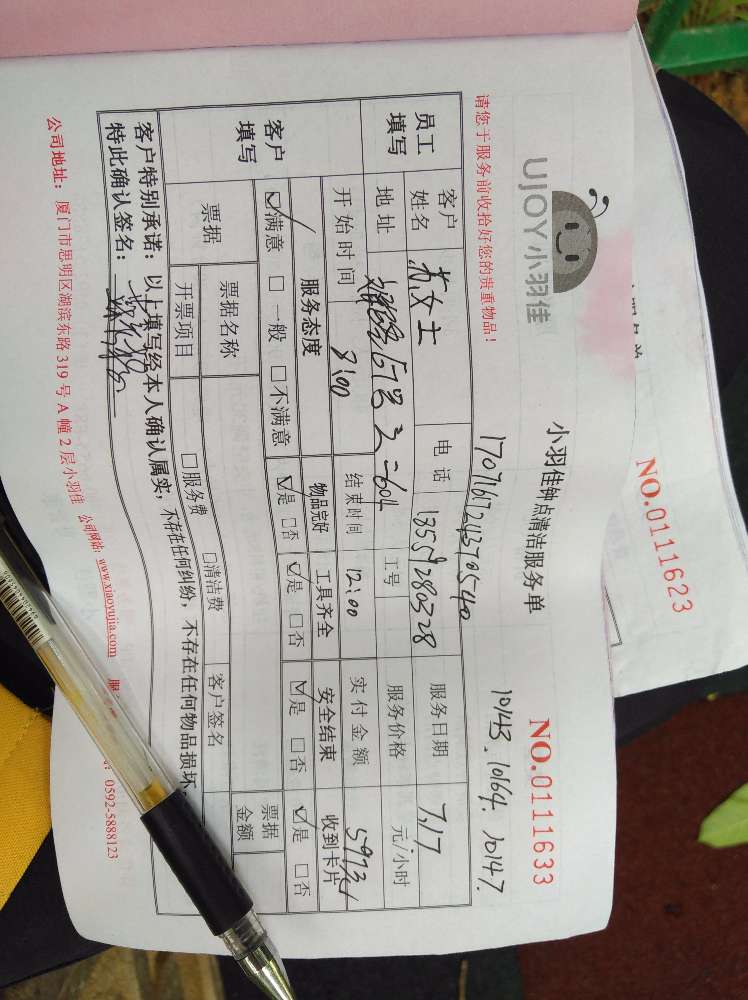 UJOY小羽佳
小羽佳钟点清洁服务单
NO.0111633
请您于服务前收拾好您的贵重物品!
10143. 10164. 10147
员工填写
客户姓名 苏女士 电话 13559280328 服务日期 7.17
地址 工号 服务价格 元/小时
开始时间 8:00 结束时间 12:00 实付金额
客户填写
服务态度 物品完好 工具齐全 安全结束 收到卡片
☑满意 □一般 □不满意 ☑是 □否 ☑是 □否 ☑是 □否 ☑是 □否
票据 票据名称 客户签名 票据金额
开票项目 □服务费 □清洁费
客户特别承诺:以上填写经本人确认属实,不存在任何纠纷,不存在任何物品损坏,
特此确认签名:
公司地址:厦门市思明区湖滨东路 319 号 A 幢 2 层小羽佳 公司网站:www.xiaoyujia.com
0592-5888123
NO.0111623